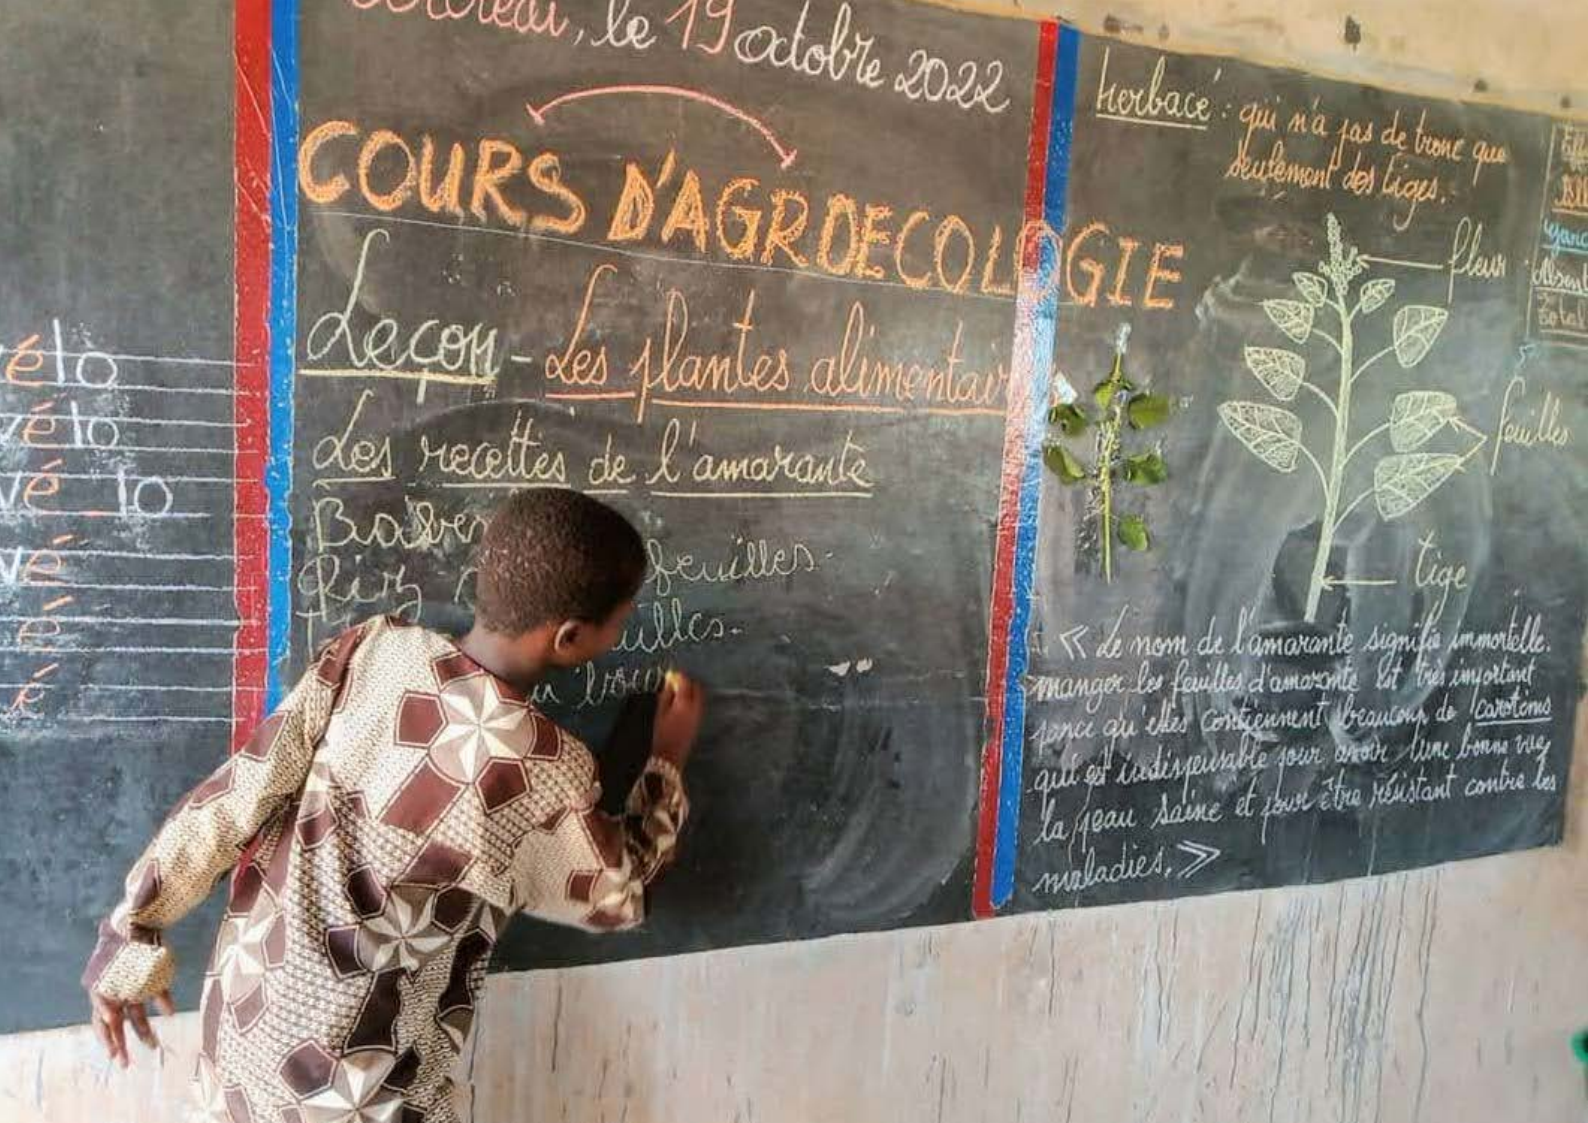 élo
vélo
vé lo
vé
é
é
le 19 octobre 2022
COURS D'AGROECOLOGIE
Leçon - Les plantes alimentair
Les recettes de l'amarante
Riz feuilles.
herbacé : qui n'a pas de tronc que
seulement des tiges.
fleur
feuilles
tige
« Le nom de l'amarante signifie immortelle.
manger les feuilles d'amarante est très important
parce qu'elles contiennent beaucoup de carotens
qui est indispensable pour avoir une bonne vue,
la peau saine et pour être résistant contre les
maladies. »
Absent
Total